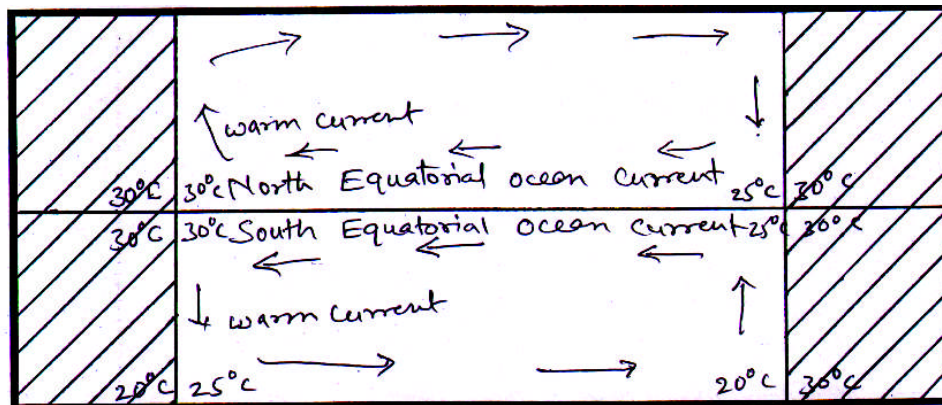 warm current
30°C 30°C North Equatorial ocean current 25°C 30°C
30°C 30°C South Equatorial ocean current 25°C 30°C
warm current
20°C 25°C 20°C 30°C